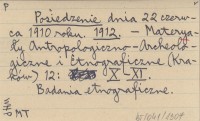 P
Posiedzenie dnia 22 czerw-
ca 1910 roku. 1912. - Materya-
ły Antropologiczno-Archeolo-
giczne i Etnograficzne (Kra-
ków) 12: X-XI.
Badania etnograficzne.
MT